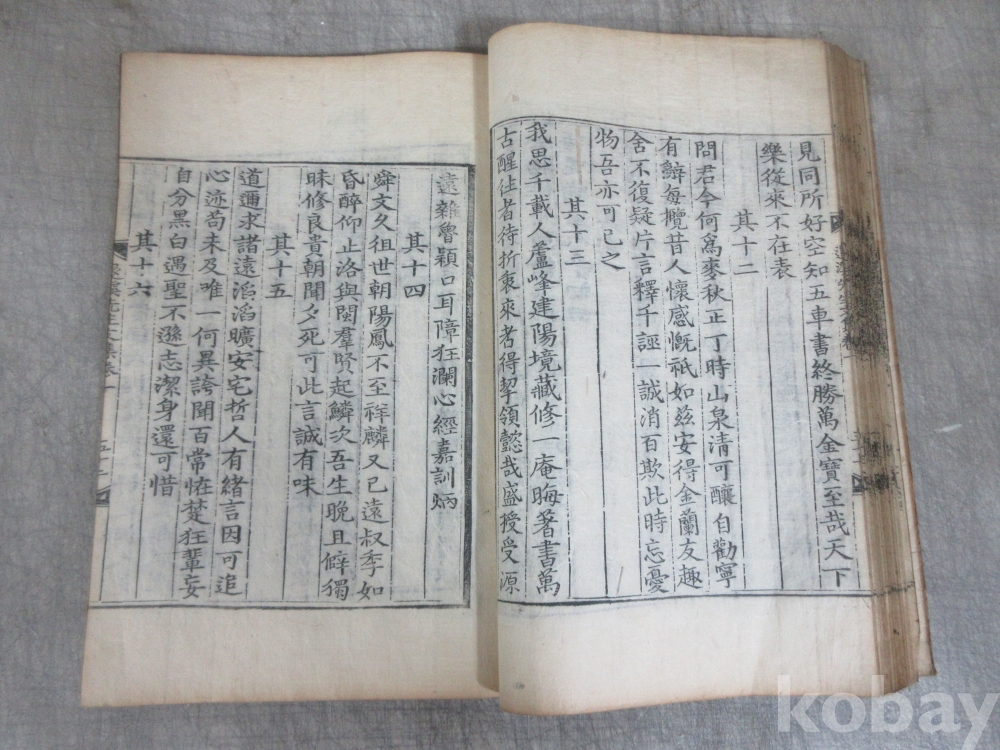 見同所好空知五車書終勝萬金寶至哉天下
樂從來不在表
其十二
問君今何爲麥秋正丁時山泉清可釀自勸寧
有辭每攬昔人懷感慨祇如玆安得金蘭友趣
舍不復疑片言釋千誣一誠消百欺此時忘憂
物吾亦可已之
其十三
我思千載人蘆峰建陽境藏修一庵晦著書萬
古醒往者待折衷來者得挈領懿哉盛授受源
遠雜魯穎口耳障狂瀾心經嘉訓炳
其十四
舜文久徂世朝陽鳳不至祥麟又已遠叔季如
昏醉仰止洛與閩羣賢起鱗次吾生晚且僻獨
昧修良貴朝聞夕死可此言誠有味
其十五
道邇求諸遠滔滔曠安宅哲人有緖言因可追
心迹苟未及唯一何異誇聞百常恠楚狂輩妄
自分黑白遇聖不遜志潔身還可惜
其十六
kobay